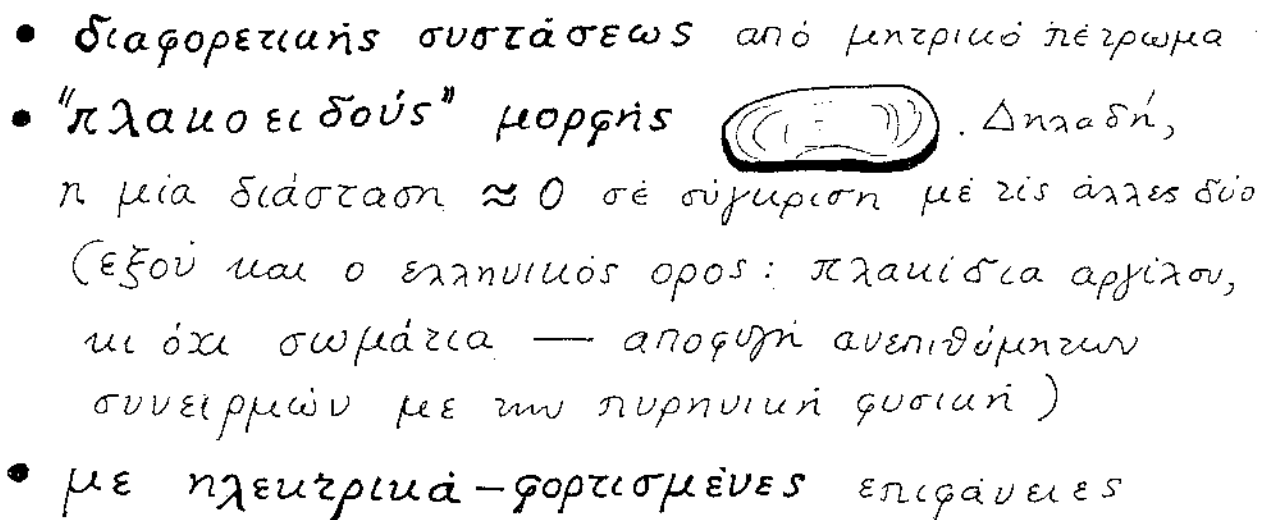 • διαφορετικής συστάσεως από μητρικό πέτρωμα
• "πλακοειδούς" μορφής . Δηλαδή,
η μία διάσταση ≈ 0 σέ σύγκριση μέ τίς άλλες δύο
(εξού και ο ελληνικός ορος: πλακίδια αργίλου,
κι όχι σωμάτια — αποφυγή ανεπιθύμητων
συνειρμών με την πυρηνική φυσική)
• με ηλεκτρικά-φορτισμένες επιφάνειες